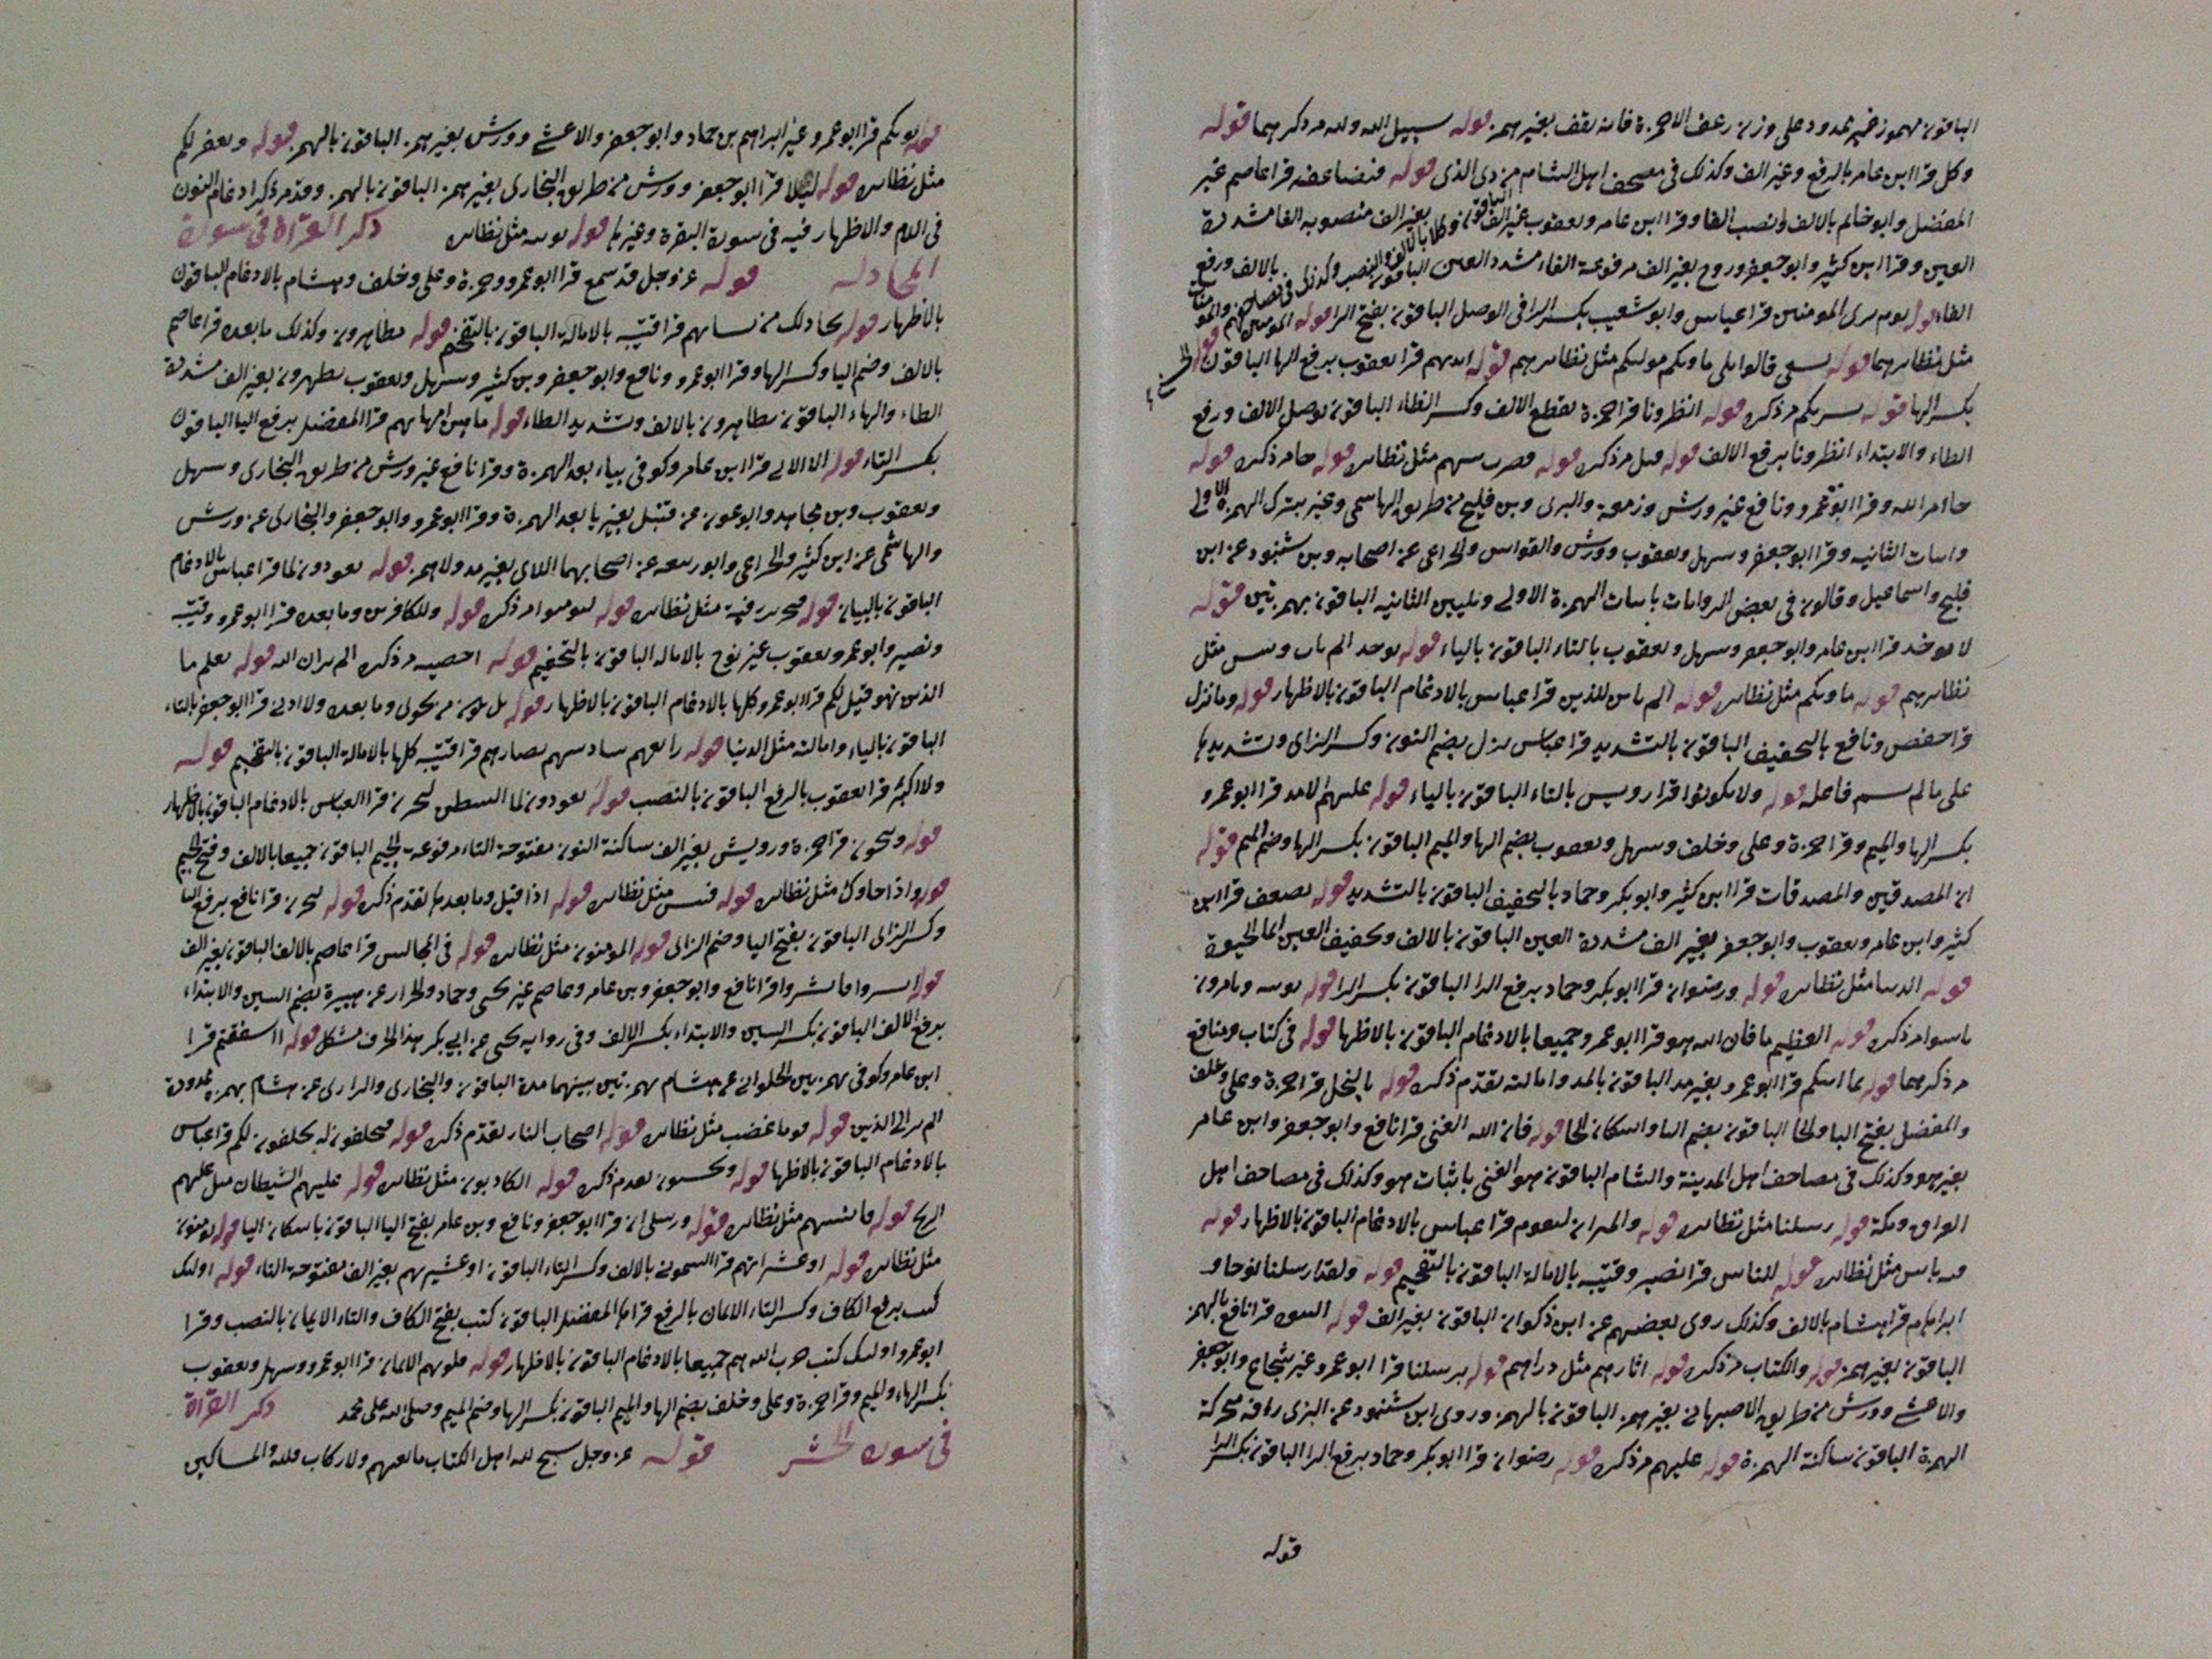 الباقون مهموز غير ممدود على وزن رعف الا حمزة فانه يقف بغير همز قوله سبيل الله ولله مر ذكرهما قوله
وكل قرا ابن عامر بالرفع وغير الف وكذلك في مصحف اهل الشام من ذى الذى قوله فيضاعفه قرا عاصم غير
المفضل وابو حاتم بالالف ونصب الفا وقرا ابن عامر ويعقوب غير الف بغير الف منصوبه الفا مشددة
العين وقرا ابن كثير وابو جعفر وروح بغير الف مرفوعة الفاء مشدد العين الباقون بالالف ورفع
الفاء قوله يوم ترى المومنين قرا عباس وابو شعيب بكسر الرا في الوصل الباقون بفتح الرا قوله المومنين
مثل نظايرهما قوله يسعى قالوا بلى ماويكم موليكم مثل نظايرهم قوله ايديهم قرا يعقوب برفع الها الباقون
بكسر الها قوله بشريكم مر ذكره قوله انظرونا قرا حمزة بقطع الالف وكسر الظاء الباقون بوصل الالف ورفع
الظاء والابتداء انظرونا برفع الالف قوله قيل مر ذكره قوله فضرب بينهم مثل نظايره قوله جا مر ذكره قوله
جاء امر الله وقرا ابو عمرو ونافع غير ورش وزمعة والبزى وبن فليح من طريق الهاشمي وغير بترك الهمزة الاولى
واثبات الثانيه وقرا ابو جعفر وسهل ويعقوب وورش والقواس والخزاعى عن اصحابه وبن شنبود عن ابن
فليح واسماعيل وقالون في بعض الروايات باثبات الهمزة الاولى وتليين الثانيه الباقون بهمزتين قوله
لا يوخذ قرا ابن عامر وابو جعفر وسهل ويعقوب بالتاء الباقون بالياء قوله يوخذ الم يان وبيس مثل
نظايرهم قوله ماويكم مثل نظايره قوله الم يان للذين قرا عباس بالادغام الباقون بالاظهار قوله وما نزل
قرا حفص ونافع بالتخفيف الباقون بالتشديد قرا عباس نزل بضم النون وكسر الزاى وتشديدها
على ما لم يسم فاعله قوله ولا يكونوا قرا رويس بالتاء الباقون بالياء قوله عليهم الامد قرا ابو عمرو
بكسر الها والميم وقرا حمزة وعلى وخلف وسهل ويعقوب بضم الها والميم الباقون بكسر الها وضم الميم قوله
ان المصدقين والمصدقات قرا ابن كثير وابو بكر وحماد بالتخفيف الباقون بالتشديد قوله يضعف قرا ابن
كثير وابن عامر ويعقوب وابو جعفر بغير الف مشددة العين الباقون بالالف وتخفيف العين انما الحيوة
قوله الدنيا مثل نظايره قوله ورضوان قرا ابو بكر وحماد برفع الرا الباقون بكسر الرا قوله يوتيه ويامرون
ماسوا مر ذكره قوله العظيم ما فان الله هو قرا ابو عمرو جميعا بالادغام الباقون بالاظهار قوله في كتاب ومنافع
مر ذكرهما قوله بما اتيكم قرا ابو عمرو بغير مد الباقون بالمد وامالته تقدم ذكره قوله بالبخل قرا حمزة وعلى وخلف
والمفضل بفتح البا والخا الباقون بضم البا واسكان الخا قوله فان الله الغنى قرا نافع وابو جعفر وابن عامر
بغير هو وكذلك في مصاحف اهل المدينة والشام الباقون هو الغنى باثبات هو وكذلك في مصاحف اهل
العراق ومكة قوله رسلنا مثل نظايره قوله والميزان ليقوم قرا عباس بالادغام الباقون بالاظهار قوله
فيه باس مثل نظايره قوله للناس قرا نصير وقتيبه بالامالة الباقون بالتفخيم قوله ولقد ارسلنا نوحا و
ابراهيم قرا هشام بالالف وكذلك روى بعضهم عن ابن ذكوان الباقون بغير الف قوله النبوه قرا نافع بالهمز
الباقون بغير همز قوله والكتاب مر ذكره قوله اثارهم مثل دراهم قوله برسلنا قرا ابو عمرو غير شجاع وابو جعفر
والاعشى وورش من طريق الاصبهاني بغير همز الباقون بالهمز وروى ابن شنبود عن البزى رافه متحركة
الهمزة الباقون ساكنة الهمزة قوله عليهم مر ذكره قوله رضوان قرا ابو بكر وحماد برفع الرا الباقون بكسر الرا
قوله
قوله يوتكم قرا ابو عمرو غير ابراهيم بن حماد وابو جعفر والاعشى وورش بغير همز الباقون بالهمز قوله ويغفر لكم
مثل نظايره قوله ليلا قرا ابو جعفر وورش من طريق البخارى بغير همز الباقون بالهمز وقد مر ذكر ادغام النون
في اللام والاظهار فيه في سورة البقرة وغيرها قوله يوتيه مثل نظايره ذكر القراة في سورة
المجادله قوله عز وجل قد سمع قرا ابو عمرو وحمزة وعلى وخلف وهشام بالادغام الباقون
بالاظهار قوله تجادلك من نسايهم قرا قتيبه بالامالة الباقون بالتفخيم قوله يظاهرون وكذلك ما بعده قرا عاصم
بالالف وضم اليا وكسر الها وقرا ابو عمرو ونافع وابو جعفر وبن كثير وسهل ويعقوب يظهرون بغير الف مشددة
الظاء والهاء الباقون يظاهرون بالالف وتشديد الظاء قوله ما هن امهاتهم قرا المفضل برفع التا الباقون
بكسر التاء قوله الا اللائى قرا ابن عامر وكوفى بياء بعد الهمزة وقرا نافع غير ورش من طريق البخارى وسهل
ويعقوب وبن مجاهد وابو عون عن قنبل بغير يا بعد الهمزة وقرا ابو عمرو وابو جعفر والبخارى عن ورش
والهاشمى عن ابن كثير والخزاعى وابو ربيعه عن اصحابهما اللاى بغير مد ولا همز قوله يعودون لما قرا عباس بالادغام
الباقون بالبيان قوله فتحرير رقبة مثل نظايره قوله ليومنوا مر ذكره قوله وللكافرين وما بعده قرا ابو عمرو وقتيبه
ونصير وابو عمرو ويعقوب غير روح بالاماله الباقون بالتفخيم قوله احصيه مر ذكره الم تر ان الله قوله يعلم ما
الذين نهو قيل لكم قرا ابو عمرو كلها بالادغام الباقون بالاظهار قوله ما يكون من نجوى وما بعده ولا ادنى قرا ابو جعفر بالتاء
الباقون بالياء وامالته مثل الدنيا قوله رابعهم سادسهم بضارهم قرا قتيبه كلها بالامالة الباقون بالتفخيم قوله
ولا اكثر قرا يعقوب بالرفع الباقون بالنصب قوله يعودون لما الشيطن ليحزن قرا العباس بالادغام الباقون بالاظهار
قوله ويتنجون قرا حمزة ورويس بغير الف ساكنة النون مفتوحة التاء مرفوعة الجيم الباقون جميعا بالالف وفتح الجيم
قوله واذا جاوك مثل نظايره قوله فبيس مثل نظايره قوله اذا قيل وما بعدها تقدم ذكره قوله ليحزن قرا نافع برفع اليا
وكسر الزاى الباقون بفتح اليا وضم الزاى قوله المومنون مثل نظايره قوله في المجالس قرا عاصم بالالف الباقون بغير الف
قوله انشزوا فانشزوا قرا نافع وابو جعفر وبن عامر وعاصم غير يحيى وحماد والخزاز عن هبيرة بضم الشين والابتداء
برفع الالف الباقون بكسر الشين والابتداء بكسر الالف وفي روايه يحيى عن ابي بكر هذا الحرف مشكل قوله ااشفقتم قرا
ابن عامر وكوفى بهمزتين الحلوانى عن هشام بهمزتين بينهما مدة الباقون والبخارى والرازى عن هشام بهمزة ممدودة
الم تر الى الذين قوله قوما غضب مثل نظايره قوله اصحاب النار تقدم ذكره قوله فيحلفون له يحلفون لكم قرا عباس
بالادغام الباقون بالاظهار قوله ويحسبون تقدم ذكره قوله الكاذبون مثل نظايره قوله عليهم الشيطان مثل عليهم
الريح قوله فانسيهم مثل نظايره قوله ورسلى ان قرا ابو جعفر ونافع وبن عامر بفتح اليا الباقون باسكان اليا قوله يومنون
مثل نظايره قوله او عشيراتهم قرا الشمونى بالالف وكسر التاء الباقون او عشيرتهم بغير الف مفتوحة التاء قوله اولئك
كتب برفع الكاف وكسر التاء الايمان بالرفع قراها المفضل الباقون كتب بفتح الكاف والتاء الايمان بالنصب وقرا
ابو عمرو اولئك كتب حزب الله هم جميعا بالادغام الباقون بالاظهار قوله قلوبهم الايمان قرا ابو عمرو وسهل ويعقوب
بكسر الهاء والميم وقرا حمزة وعلى وخلف بضم الها والميم الباقون بكسر الها وضم الميم وصلى الله على محمد ذكر القراة
في سورة الحشر قوله عز وجل سبح لله اهل الكتاب مانعتهم ولا ركاب فلله والمساكين